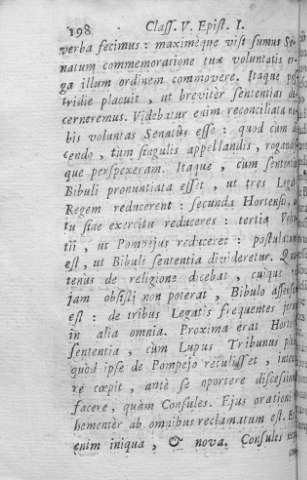 198 Class. V. Epist. I.
verba fecimus: maximèque visi sumus Se-
natum commemoratione tuæ voluntatis er-
ga illum ordinem commovere. Itaque po-
tridie placuit, ut breviter sententias di-
ceremus. Videbatur enim reconciliata
bis voluntas Senatûs esse: quod cùm
cendo, tùm singulis appellandis, rogando
que perspexeram. Itaque, cùm sententia
Bibuli pronuntiata esset, ut tres Legati
Regem reducerent: secunda Hortensii,
tu sine exercitu reduceres: tertia
tii, ut Pompejus reduceret: postulatum
est, ut Bibuli sententia divideretur.
tenus de religione dicebat, cuique
jam obsisti non poterat, Bibulo assensum
est: de tribus Legatis frequentes
in alia omnia. Proxima erat Hortensii
sententia, cùm Lupus Tribunus
quòd ipse de Pompejo retulisset,
re cœpit, antè se oportere discessionem
facere, quàm Consules. Ejus orationi
hementèr ab omnibus reclamatum est.
enim iniqua, & nova. Consules